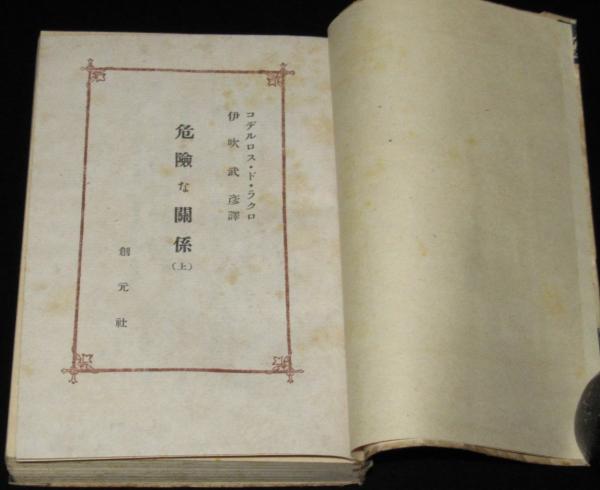 コデルロス・ド・ラクロ
伊吹武彦譯
危險な關係
(上)
創元社